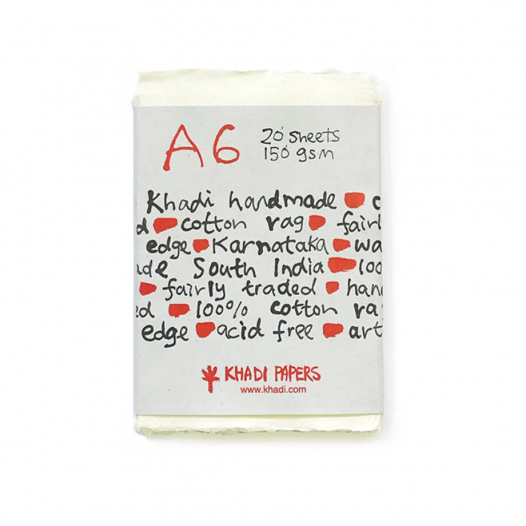 A6
20 sheets
150 gsm
Khadi handmade
cotton rag
edge Karnataka
South India
fairly traded
100% cotton
edge acid free
KHADI PAPERS
www.khadi.com